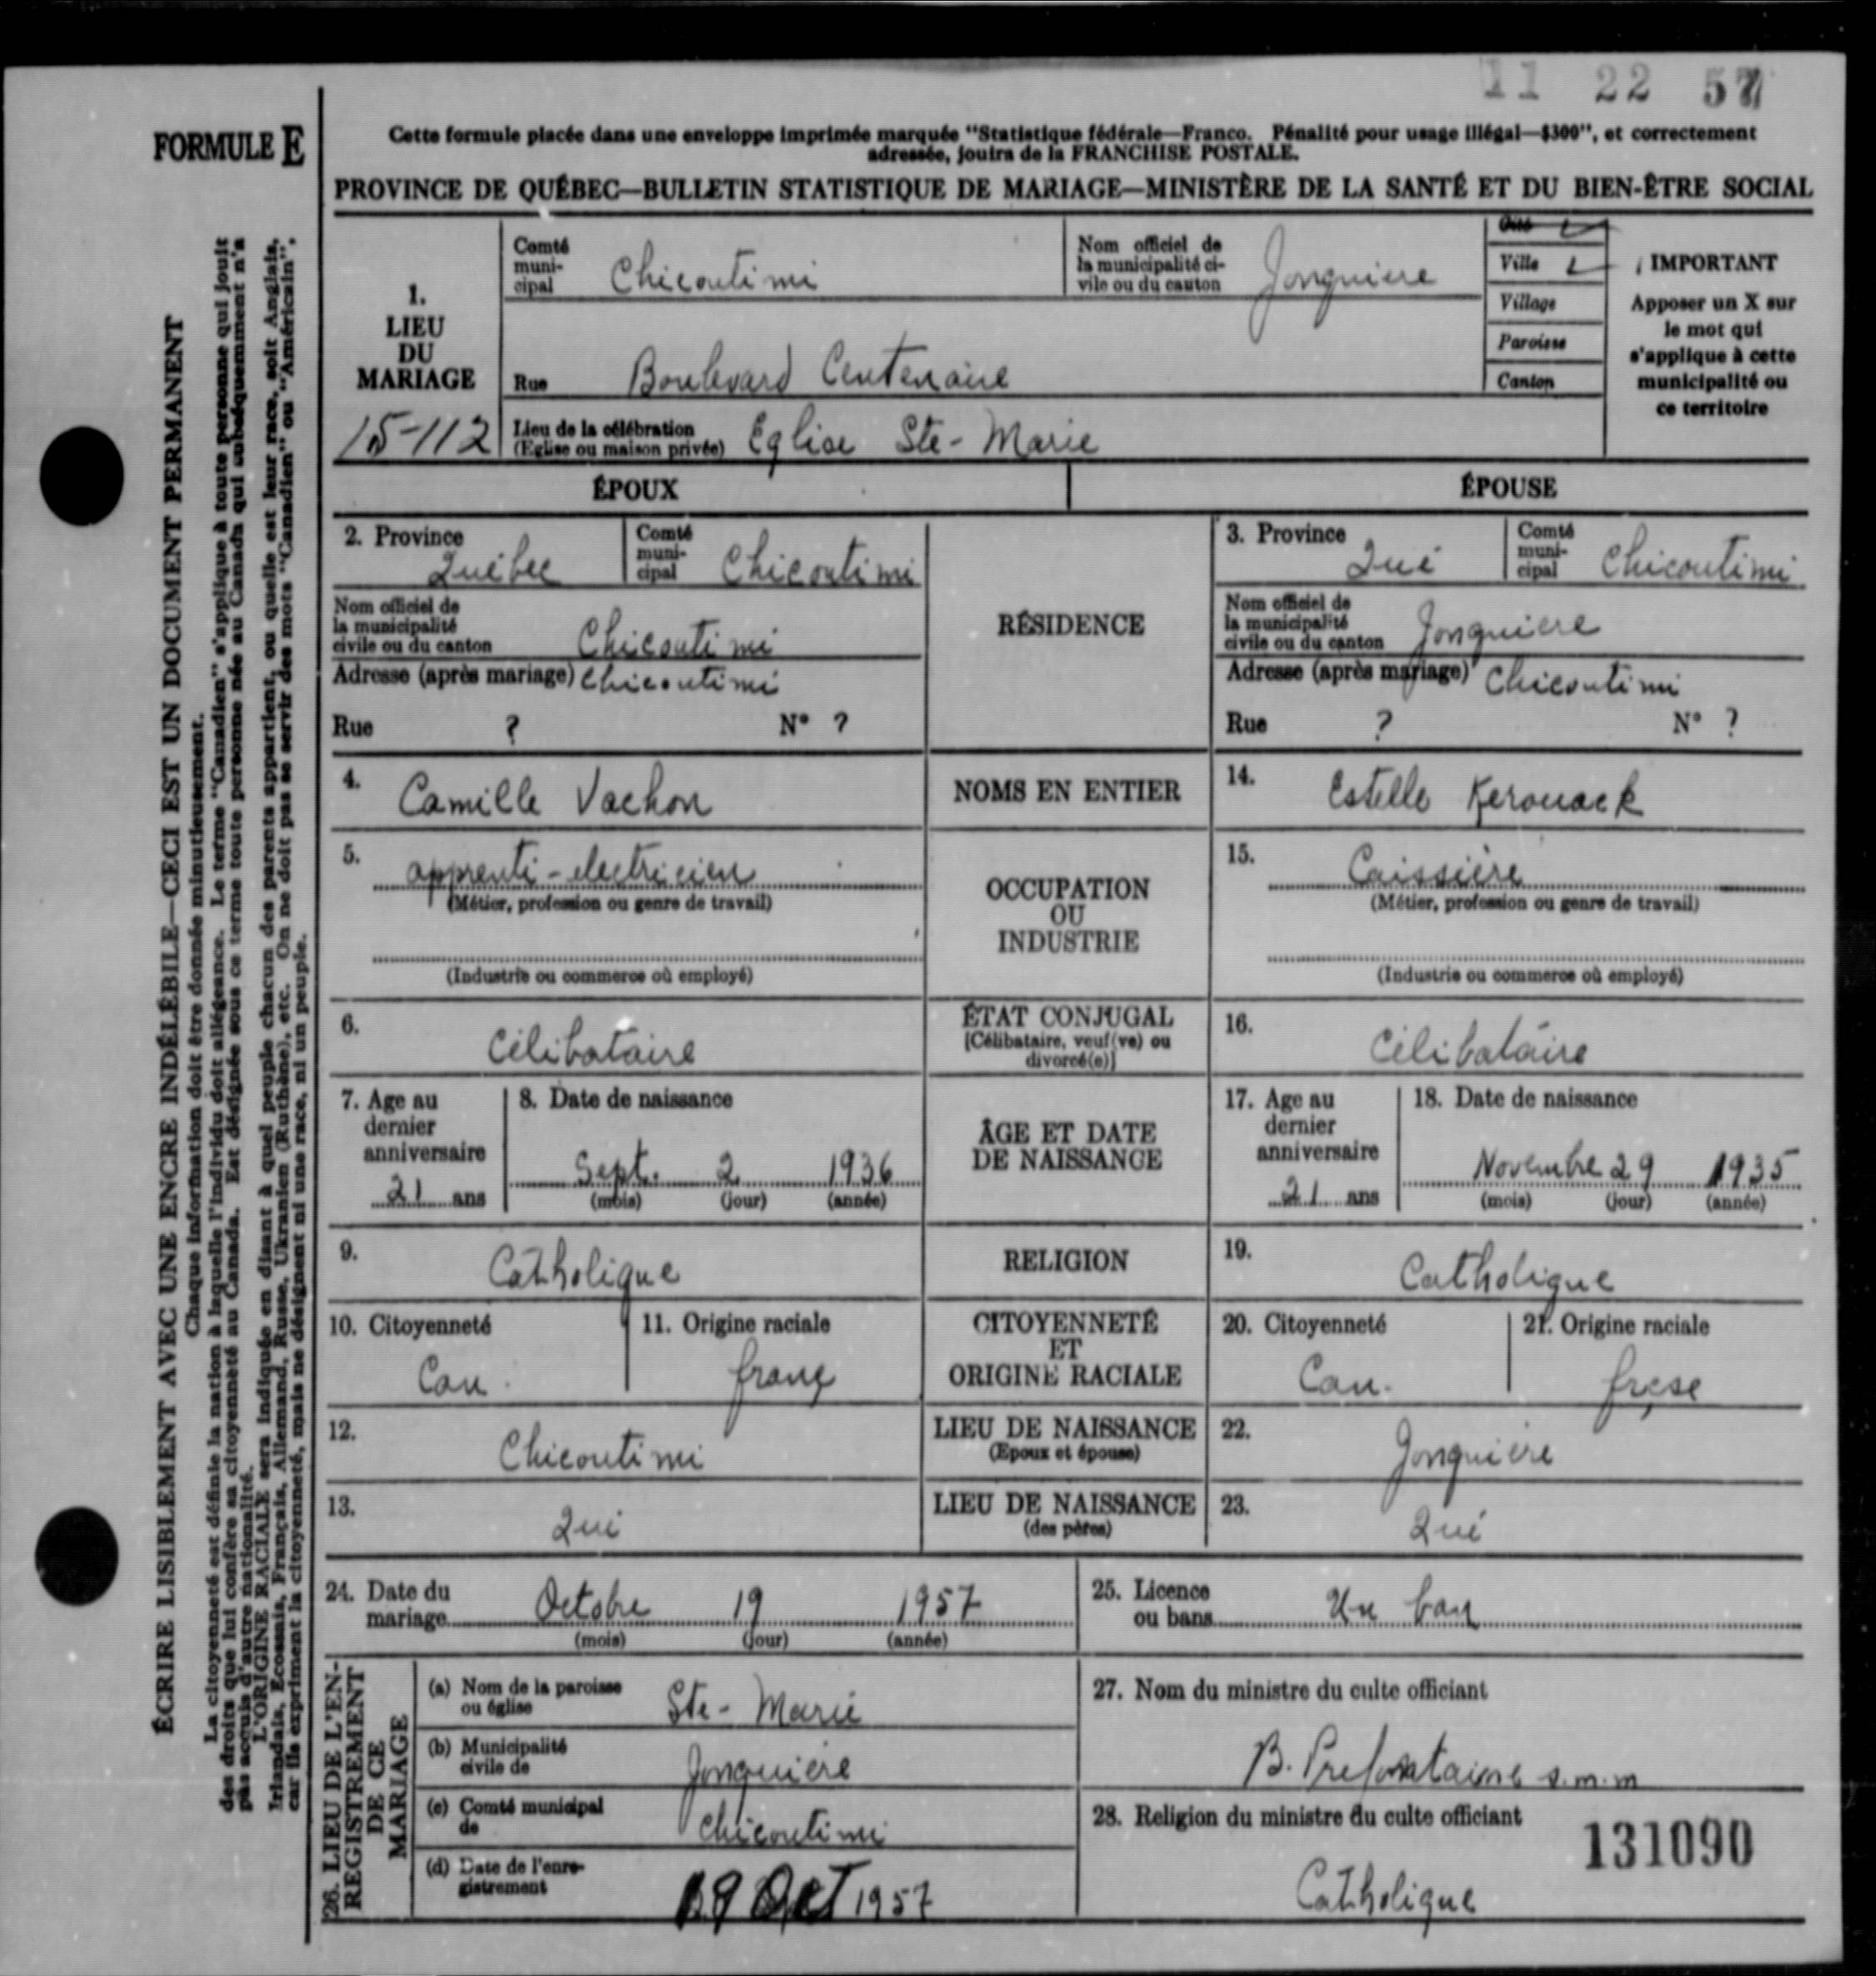 11 22 57
FORMULE E
Cette formule placée dans une enveloppe imprimée marquée "Statistique fédérale—Franco. Pénalité pour usage illégal—$300", et correctement
adressée, jouira de la FRANCHISE POSTALE.
PROVINCE DE QUÉBEC—BULLETIN STATISTIQUE DE MARIAGE—MINISTÈRE DE LA SANTÉ ET DU BIEN-ÊTRE SOCIAL
ÉCRIRE LISIBLEMENT AVEC UNE ENCRE INDÉLÉBILE—CECI EST UN DOCUMENT PERMANENT
Chaque information doit être donnée minutieusement.
La citoyenneté est définie la nation à laquelle l'individu doit allégeance. Le terme "Canadien" s'applique à toute personne qui jouit
des droits que lui confère sa citoyenneté au Canada. Est désignée sous ce terme toute personne née au Canada qui subséquemment n'a
pas acquis d'autre nationalité.
L'ORIGINE RACIALE sera indiquée en disant à quel peuple chacun des parents appartient, ou quelle est leur race, soit Anglais,
Irlandais, Ecossais, Français, Allemand, Russe, Ukranien (Ruthène), etc. On ne doit pas se servir des mots "Canadien" ou "Américain",
car ils expriment la citoyenneté, mais ne désignent ni une race, ni un peuple.
1.
LIEU
DU
MARIAGE
15-112
Comté
muni-
cipal Chicoutimi
Nom officiel de
la municipalité ci-
vile ou du canton Jonquiere
Cité
Ville
Village
Paroisse
Canton
IMPORTANT
Apposer un X sur
le mot qui
s'applique à cette
municipalité ou
ce territoire
Rue Boulevard Centenaire
Lieu de la célébration
(Eglise ou maison privée) Eglise Ste-Marie
ÉPOUX
ÉPOUSE
2. Province Québec
Comté
muni-
cipal Chicoutimi
RÉSIDENCE
3. Province Qué
Comté
muni-
cipal Chicoutimi
Nom officiel de
la municipalité
civile ou du canton Chicoutimi
Nom officiel de
la municipalité
civile ou du canton Jonquiere
Adresse (après mariage) Chicoutimi
Adresse (après mariage) Chicoutimi
Rue ? N° ?
Rue ? N° ?
4. Camille Vachon
NOMS EN ENTIER
14. Estelle Kerouack
5. apprenti-electricien
(Métier, profession ou genre de travail)
(Industrie ou commerce où employé)
OCCUPATION
OU
INDUSTRIE
15. Caissière
(Métier, profession ou genre de travail)
(Industrie ou commerce où employé)
6. Célibataire
ÉTAT CONJUGAL
[Célibataire, veuf(ve) ou
divorcé(e)]
16. Célibataire
7. Age au
dernier
anniversaire
21 ans
8. Date de naissance
Sept. 2 1936
(mois) (jour) (année)
ÂGE ET DATE
DE NAISSANCE
17. Age au
dernier
anniversaire
21 ans
18. Date de naissance
Novembre 29 1935
(mois) (jour) (année)
9. Catholique
RELIGION
19. Catholique
10. Citoyenneté
Can.
11. Origine raciale
franç
CITOYENNETÉ
ET
ORIGINE RACIALE
20. Citoyenneté
Can.
21. Origine raciale
frçse
12. Chicoutimi
LIEU DE NAISSANCE
(Epoux et épouse)
22. Jonquière
13. Qué
LIEU DE NAISSANCE
(des pères)
23. Qué
24. Date du
mariage Octobre 19 1957
(mois) (jour) (année)
25. Licence
ou bans Un ban
26. LIEU DE L'EN-
REGISTREMENT
DE CE
MARIAGE
(a) Nom de la paroisse
ou église Ste-Marie
(b) Municipalité
civile de Jonquière
(c) Comté municipal
de Chicoutimi
(d) Date de l'enre-
gistrement 19 Oct 1957
27. Nom du ministre du culte officiant
B. Prefontaine s.m.m
28. Religion du ministre du culte officiant
131090
Catholique